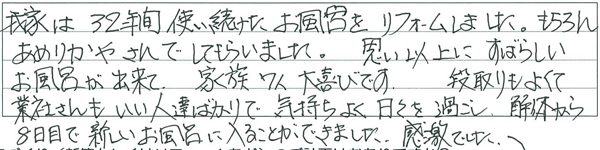 我家は32年間使い続けたお風呂をリフォームしました。もちろん
あめりかやさんでしてもらいました。思い以上にすばらしい
お風呂が出来て、家族7人大喜びです。段取りもよくて
業者さんもいい人達ばかりで気持ちよく日々を過ごし、解体から
8日目で新しいお風呂に入ることができました。感激でした。